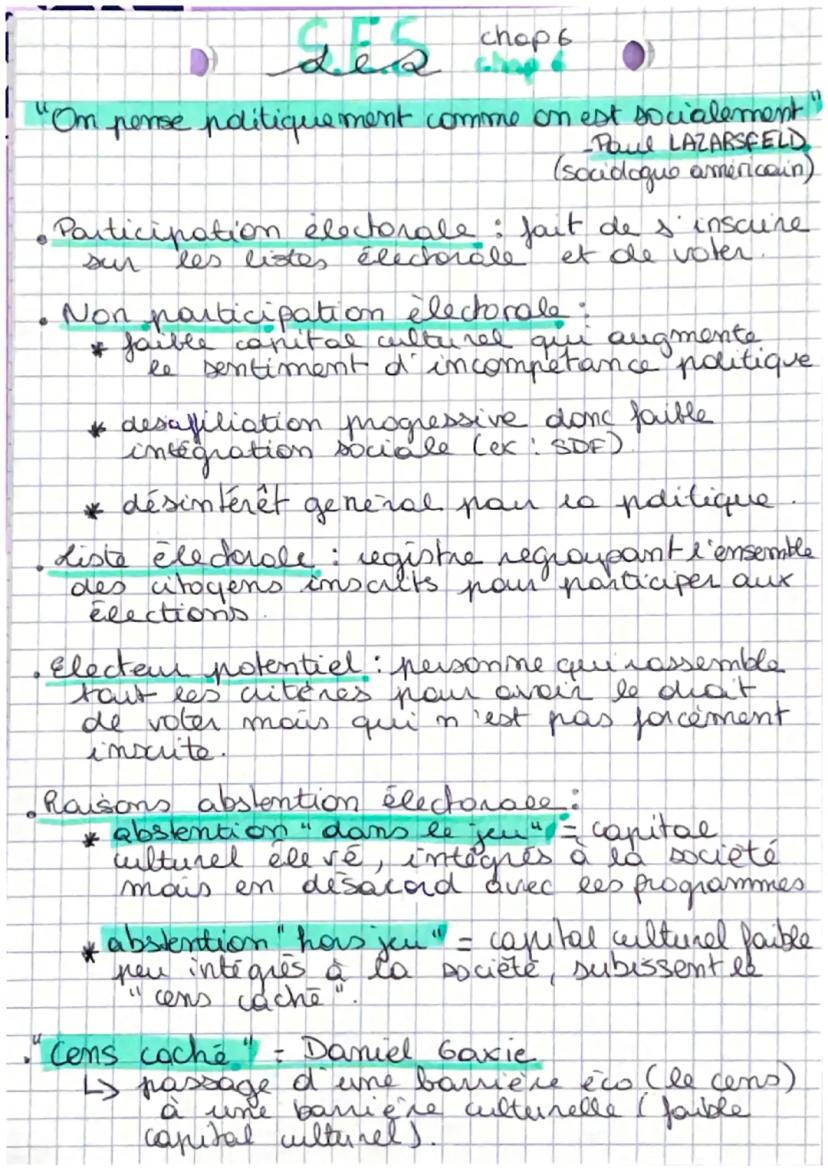 S.E.S chap 6
ses chap 6
"On pense politiquement comme on est socialement"
- Paul LAZARSFELD
(sociologue américain)
. Participation électorale : fait de s'inscrire
sur les listes électorale et de voter.
. Non participation électorale :
* faible capital culturel qui augmente
le sentiment d'incompétance politique
* desaffiliation progressive donc faible
intégration sociale (ex : SDF)
* désintérêt general pour la politique.
. Liste électorale : registre regroupant l'ensemble
des citoyens inscrits pour participer aux
élections.
. Electeur potentiel : personne qui rassemble
tout les critères pour avoir le droit
de voter mais qui n'est pas forcément
inscrite.
. Raisons abstention électorale :
* abstention "dans le jeu" = capital
culturel élevé, intégrés à la société
mais en désacord avec les programmes
* abstention "hors jeu" = capital culturel faible
peu intégrés à la société, subissent le
"cens caché".
. "Cens caché" = Daniel Gaxie
↳ passage d'une barrière éco (le cens)
à une barrière culturelle (faible
capital culturel).